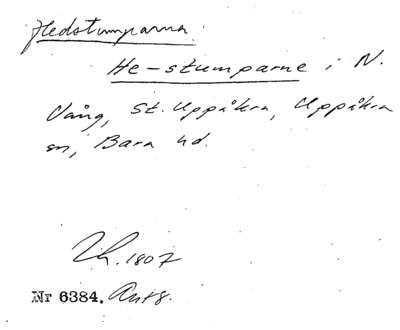 Hedstumparna
He-stumparne i N.
Vång, St. Uppåkra, Uppåkra
sn, Bara hd.
Lh. 1807
Nr 6384. Ant 8.